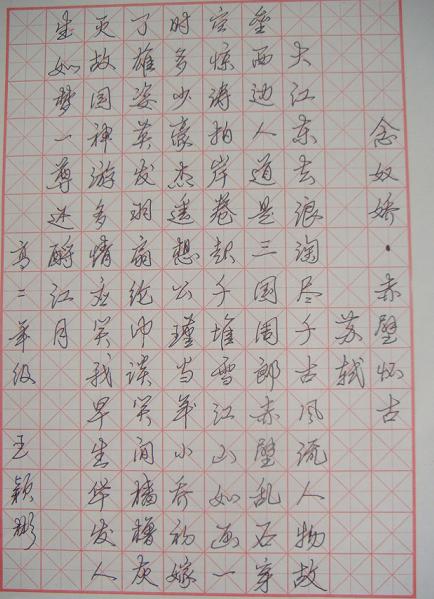 念奴娇·赤壁怀古
苏轼
大江东去浪淘尽千古风流人物故
垒西边人道是三国周郎赤壁乱石穿
空惊涛拍岸卷起千堆雪江山如画一
时多少豪杰遥想公瑾当年小乔初嫁
了雄姿英发羽扇纶巾谈笑间樯橹灰
灭故国神游多情应笑我早生华发人
生如梦一尊还酹江月
高二年级 王颖彬